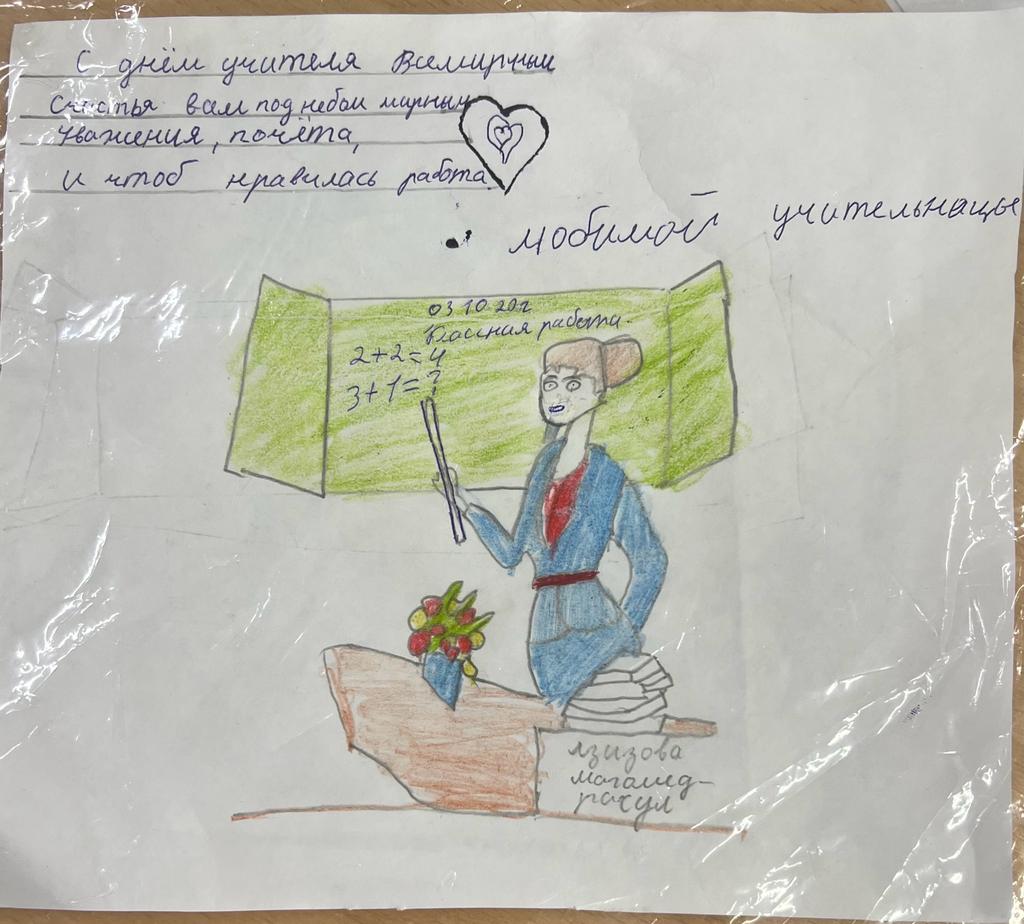 С днём учителя Всемирным
Счастья вам под небом мирным
Уважения, почёта,
И чтоб нравилась работа.
любимой учительнацы
03.10.20г
Классная работа.
2+2=4
3+1=?
Азизова
Магамед-
расул